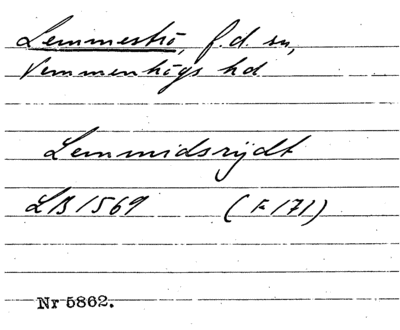 Lemmeströ, f.d. sn,
Vemmenhögs hd
Lemmidsrydt
LB 1569 (F 171)
Nr 5862.